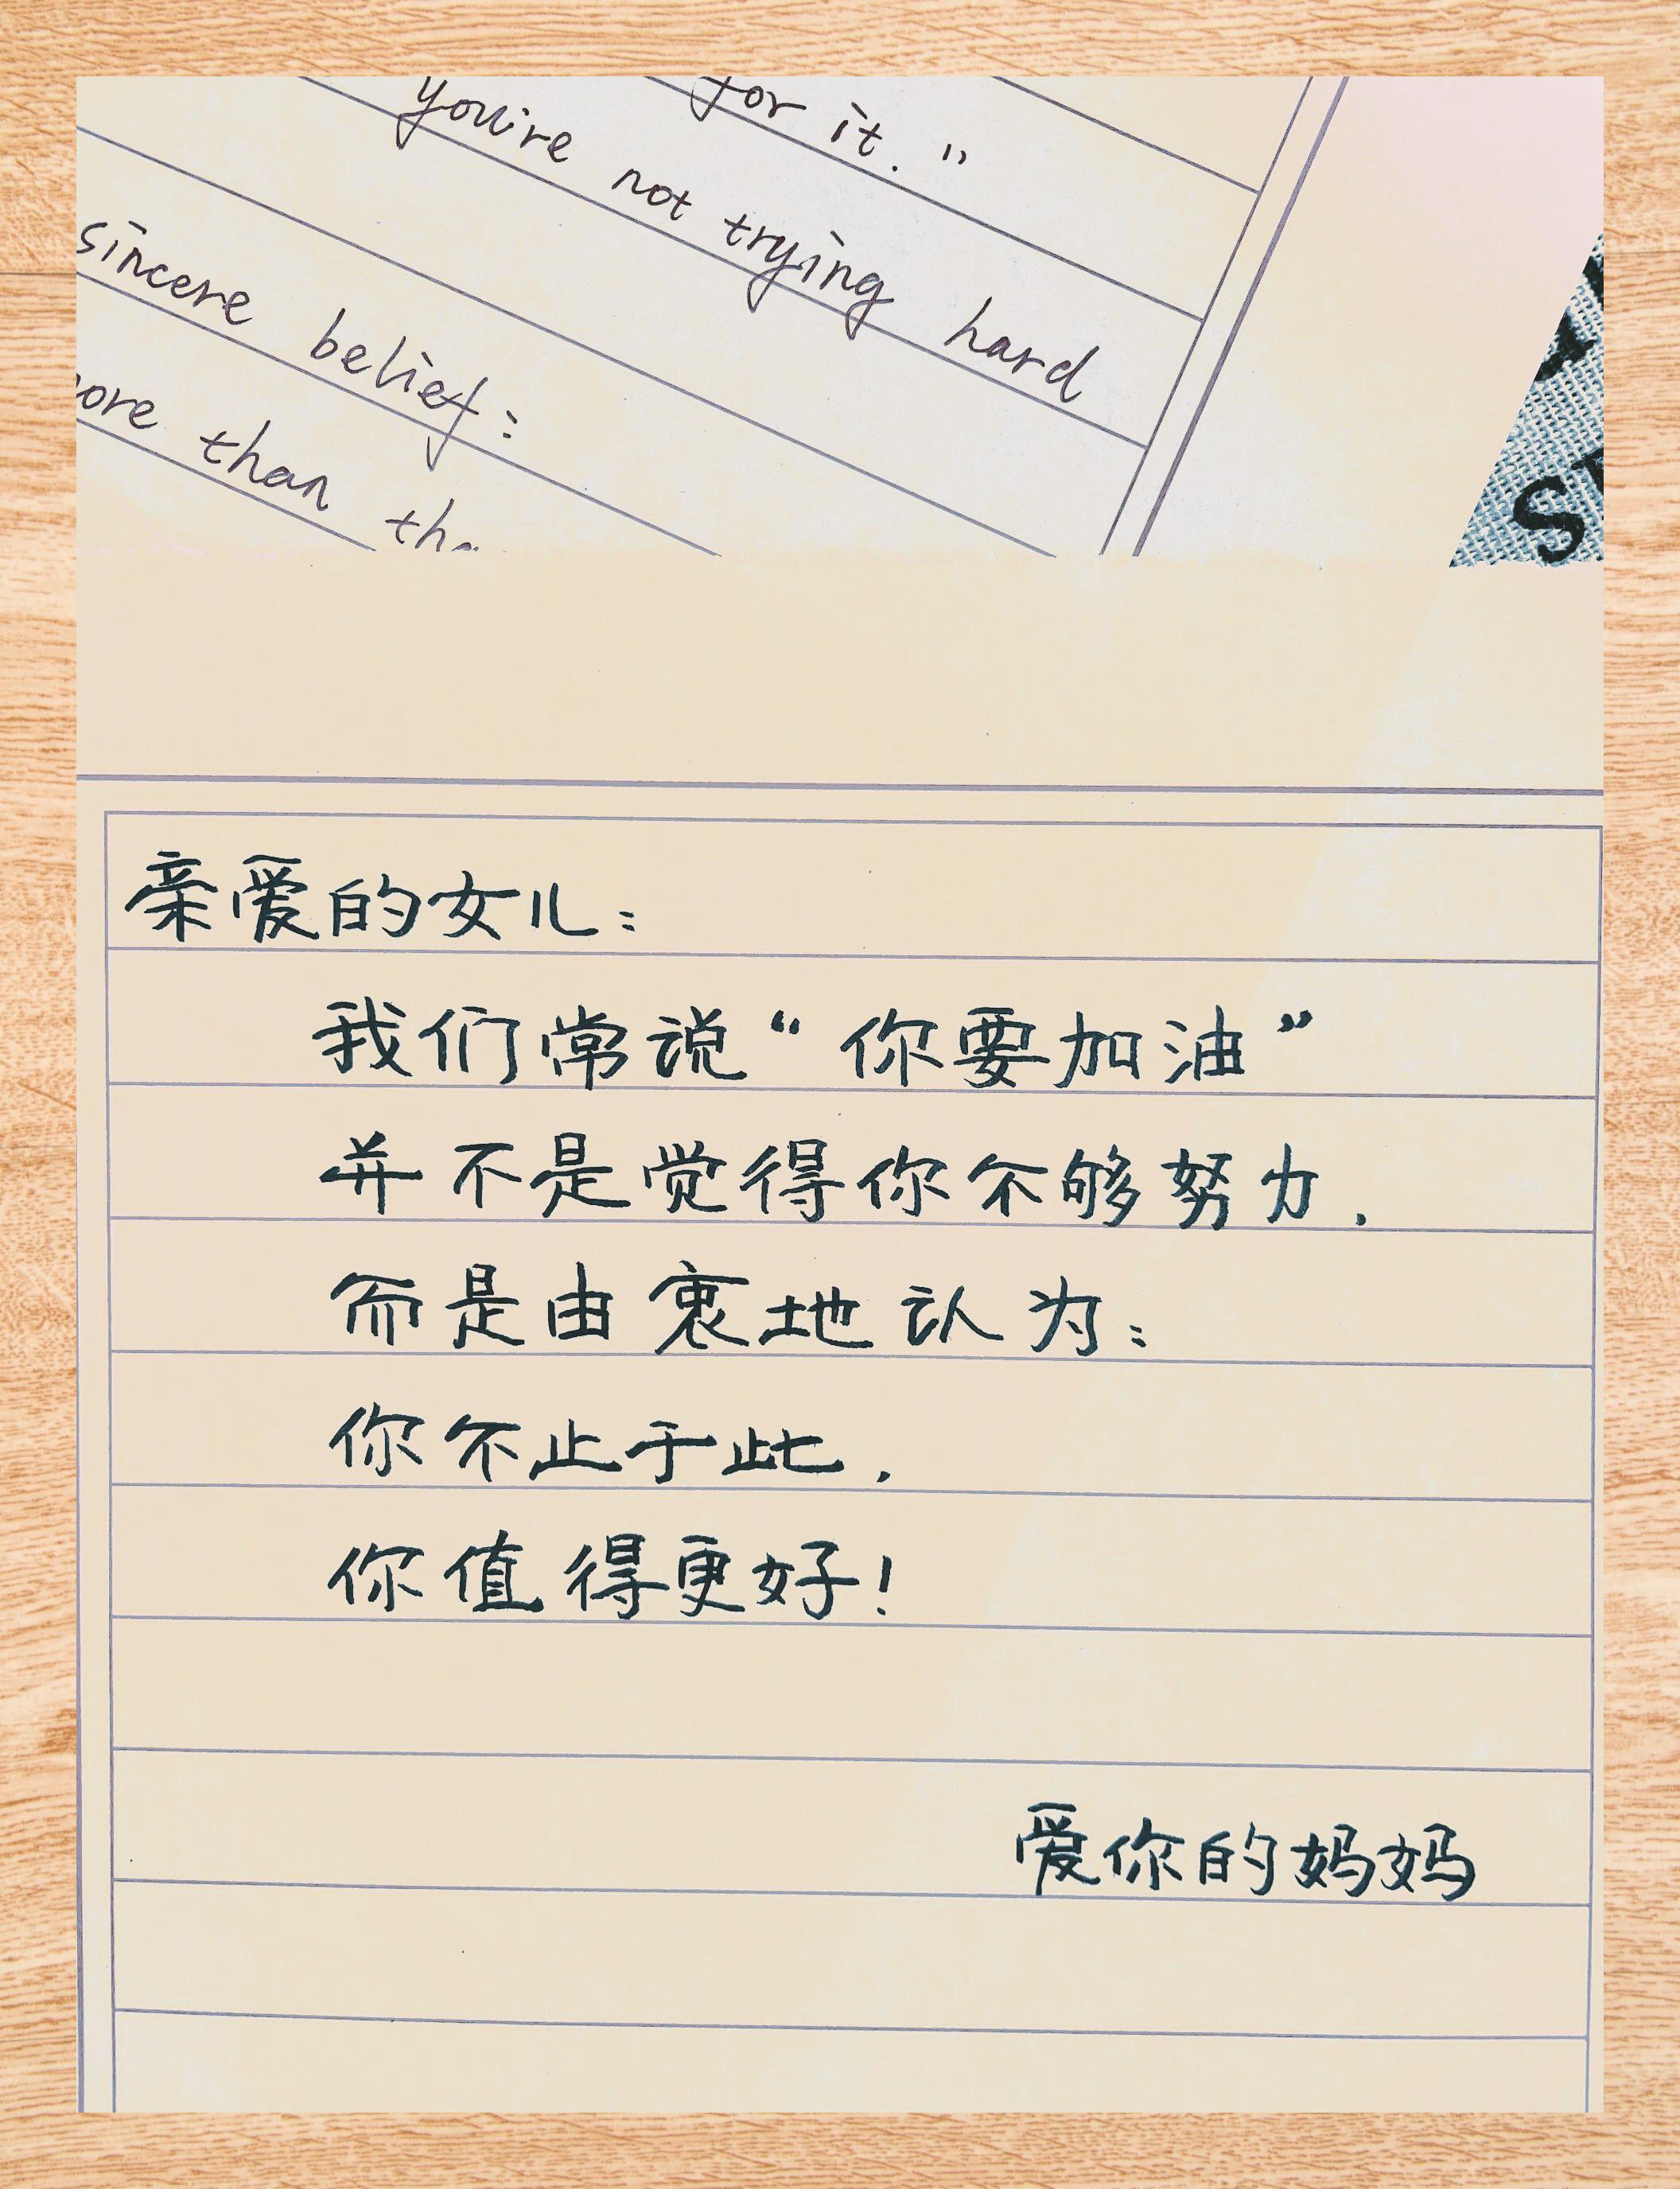 for it."
you're not trying hard
sincere belief:
than
S
亲爱的女儿:
我们常说“你要加油”
并不是觉得你不够努力.
而是由衷地认为:
你不止于此.
你值得更好!
爱你的妈妈